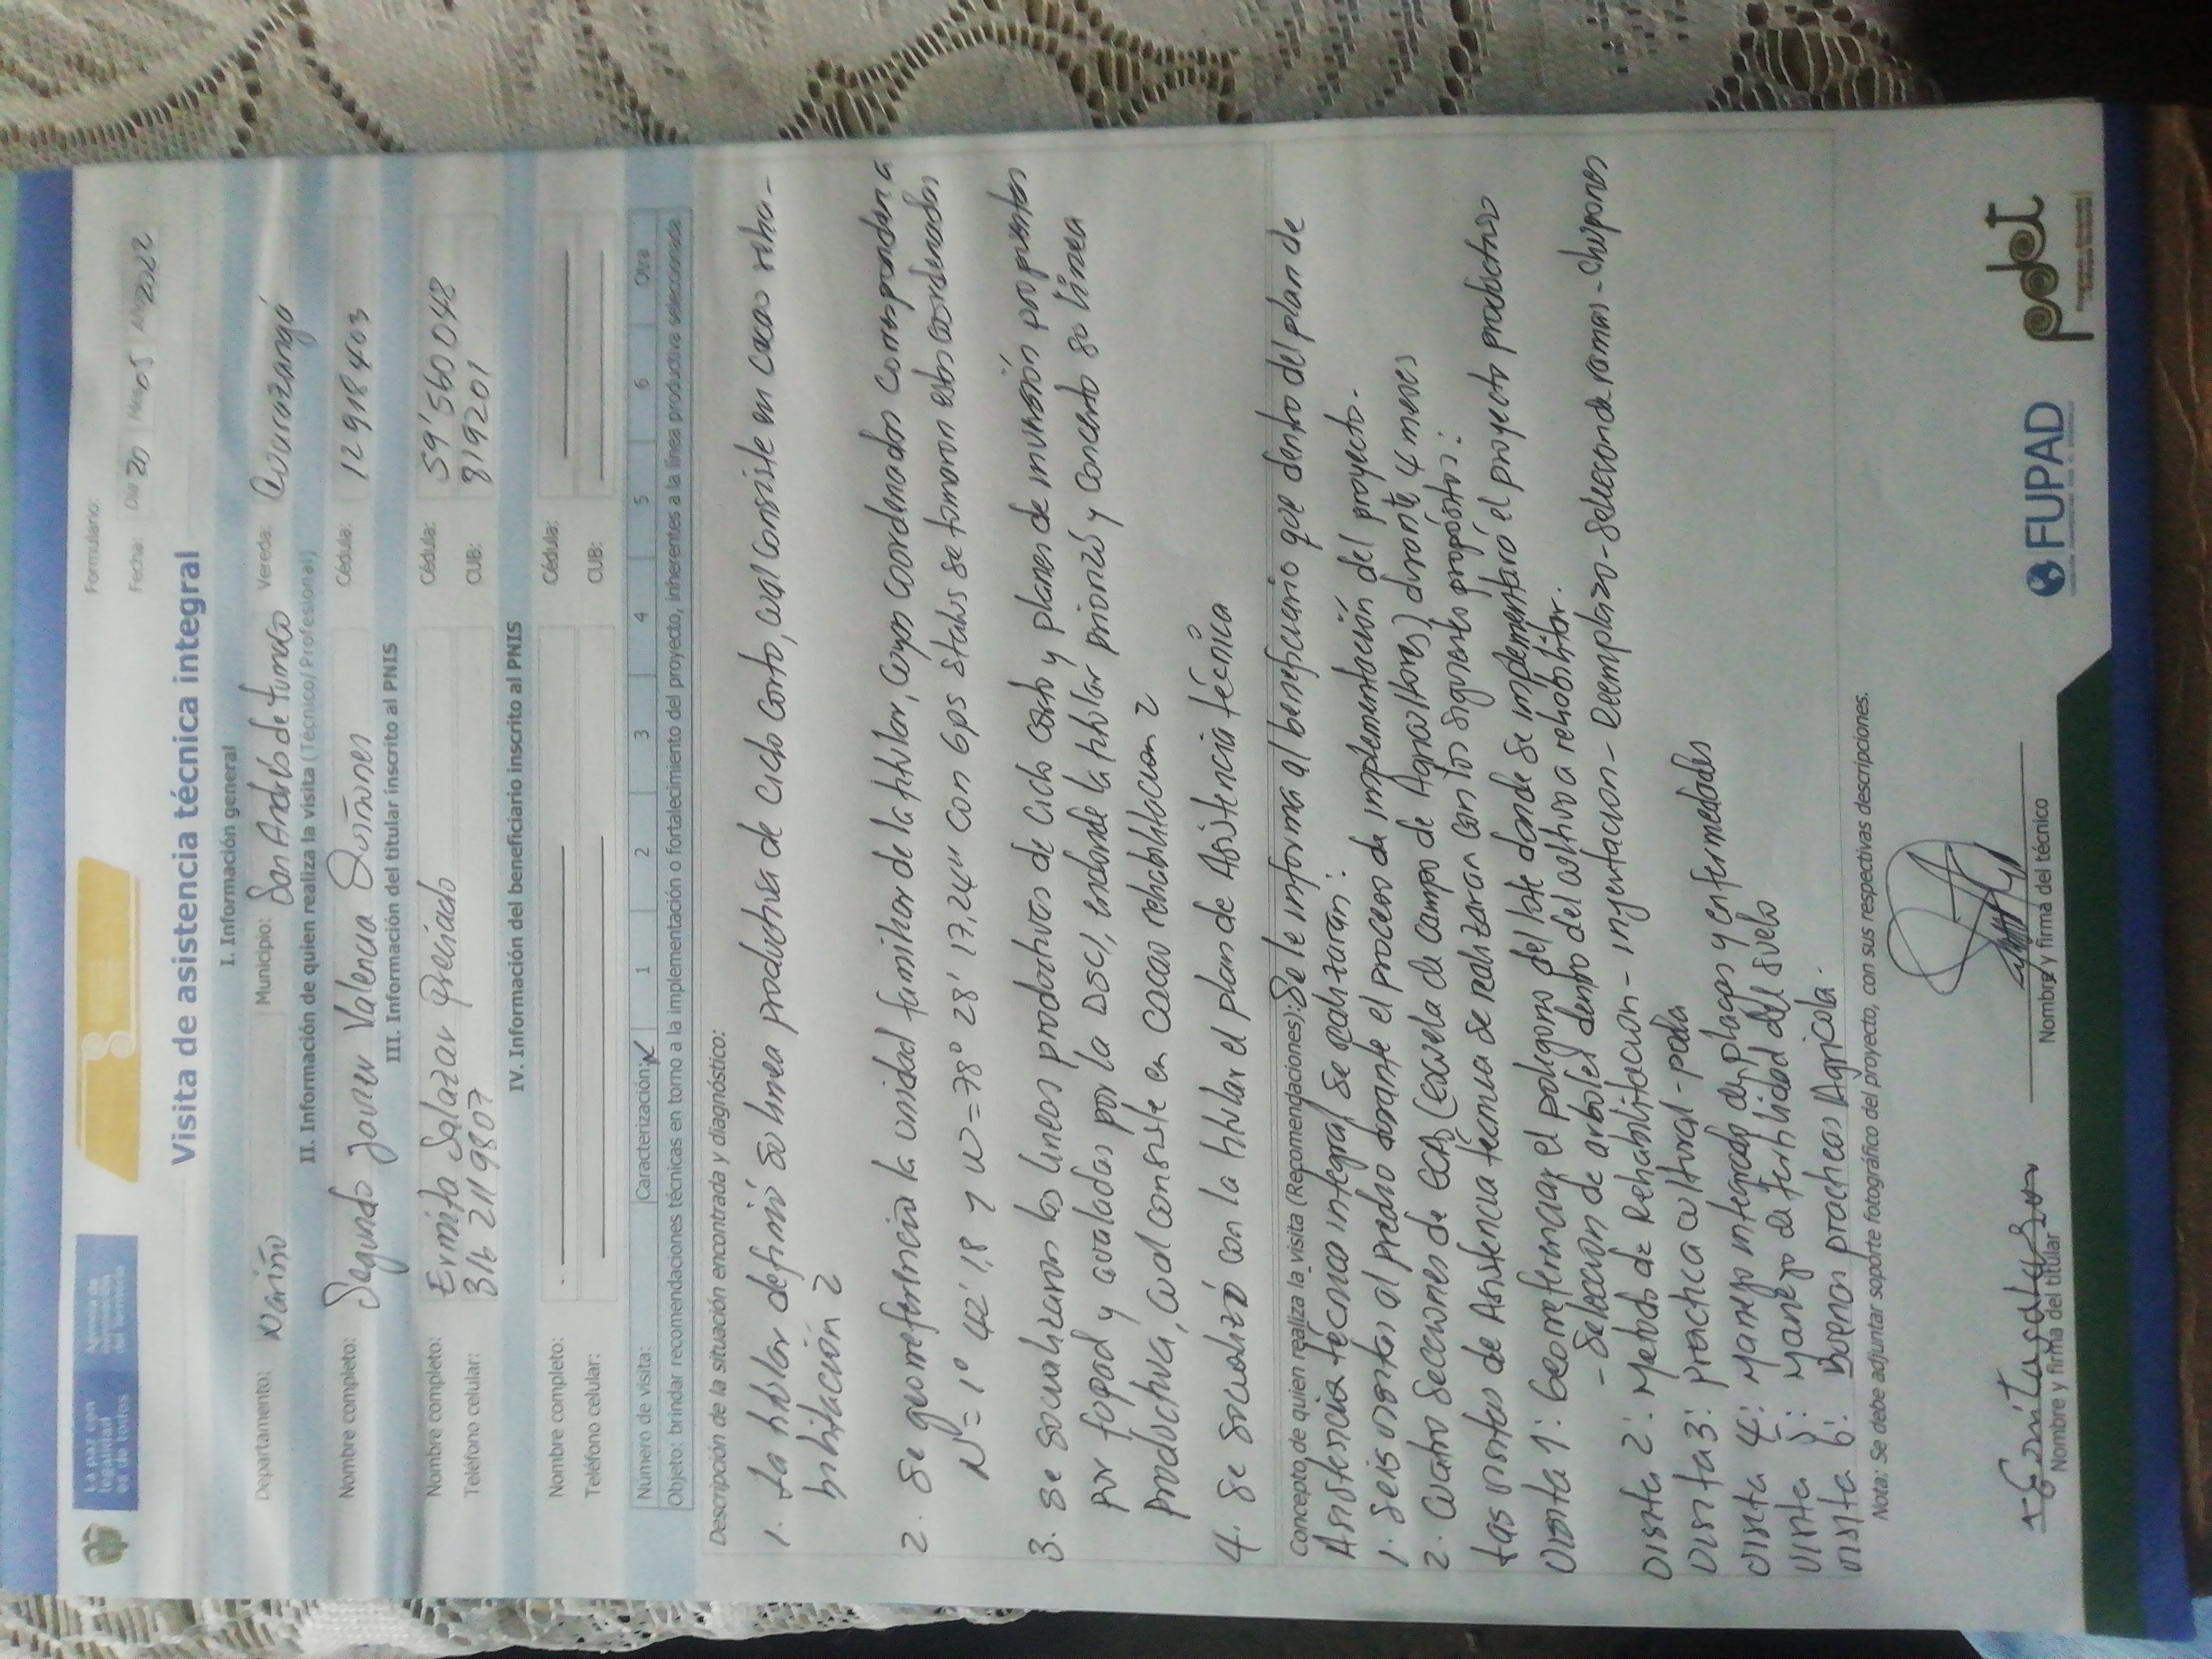 La paz con
legalidad
es de todos
Formulario:
Fecha: Día 20 Mes 05 Año 2022
Visita de asistencia técnica integral
I. Información general
Departamento: Nariño Municipio: San Andrés de tumaco Vereda:
II. Información de quien realiza la visita (Técnico/Profesional)
Nombre completo: Segundo Javier Valencia Quiñones Cédula: 12918403
III. Información del titular inscrito al PNIS
Nombre completo: Ermita Salazar Preciado Cédula: 59'560048
Teléfono celular: 316 2119807 CUB: 819201
IV. Información del beneficiario inscrito al PNIS
Nombre completo: Cédula:
Teléfono celular: CUB:
Número de visita: Caracterización: X 1 2 3 4 5 6 Otra
Objeto: brindar recomendaciones técnicas en torno a la implementación o fortalecimiento del proyecto, inherentes a la línea productiva seleccionada
Descripción de la situación encontrada y diagnóstico:
1. La titular definió su linea productiva de ciclo corto, cual consiste en cacao reha-
bilitación 2
2. Se georreferencia la unidad familiar de la titular, cuyas coordenadas corresponden a
N = 1° 42' 1,8 y W = 78° 28' 17,24" con Gps status se tomaron estas coordenadas
3. se socializaron las lineas productivas de ciclo corto y planes de inversión propuestas
por fupad y avaladas por la DSCI, en donde la titular priorizó y concerto su línea
productiva, cual consiste en cacao rehabilitacion 2
4. Se socializó con la titular el plan de Asistencia técnica
Concepto de quien realiza la visita (Recomendaciones): Se le informa al beneficiario que dentro del plan de
Asistencia técnica integral se realizaran:
1. Seis visitas al predio durante el proceso de implementación del proyecto.
2. Cuatro secciones de ECAS (escuela de campo de Agricultores) durante 4 meses
Las visitas de Asistencia técnica se realizaran con los siguientes propósitos:
Visita 1: Georreferenciar el poligono del lote donde se implementará el proyecto productivo
- Selección de arboles dentro del cultivo a rehabilitar.
Visita 2: Metodo de Rehabilitacion - injertacion - Reemplazo - seleccion de ramas - chupones
Visita 3: practica cultural - poda
Visita 4: Manejo integrado de plagas y enfermedades
Visita 5: Manejo de fertilidad del suelo
Visita 6: Buenas practicas Agricola.
Nota: Se debe adjuntar soporte fotográfico del proyecto, con sus respectivas descripciones.
Nombre y firma del titular Nombre y firma del técnico
FUPAD pdet